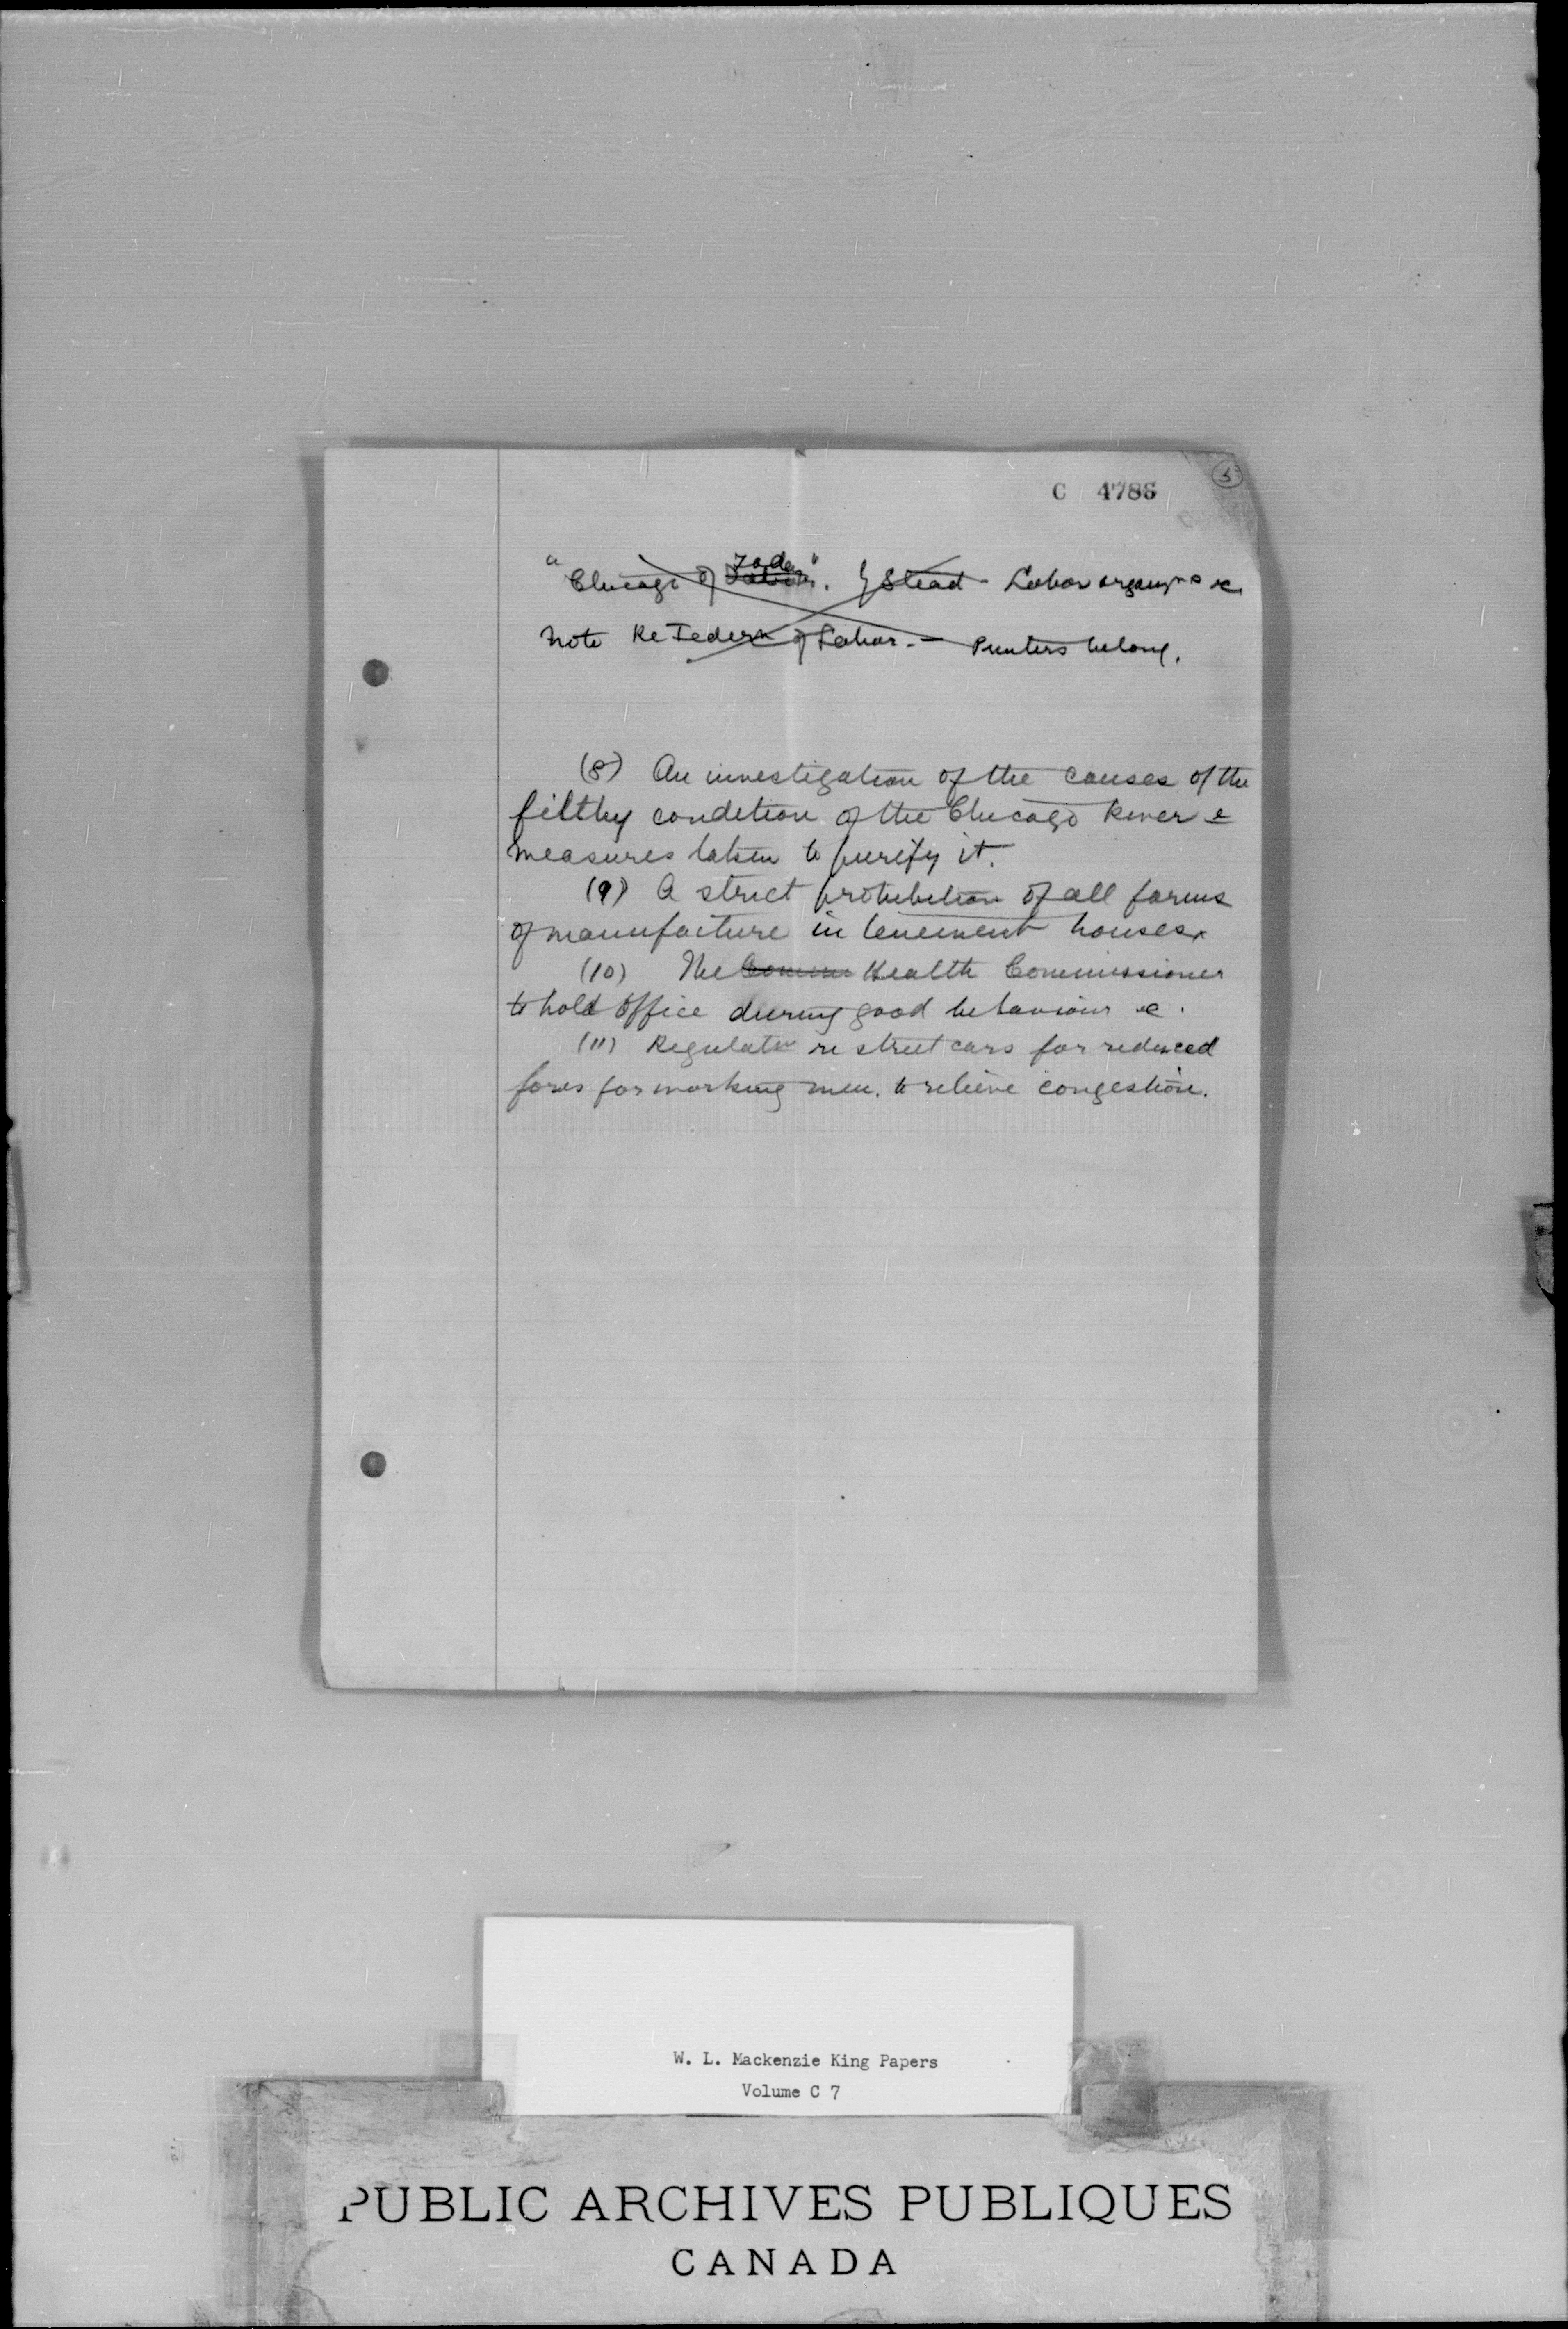 C 4786
5
"Chicago of Today". by Stead - Labor organzns &c
Note Re Federn of Labor. - Printers belong.
(8) An investigation of the causes of the
filthy condition of the Chicago River &
measures taken to purify it.
(9) A strict prohibition of all forms
of manufacture in tenement houses.
(10) The Health Commissioner
to hold office during good behaviour &c.
(11) Regulatn re street cars for reduced
fares for working men. to relieve congestion.
W. L. Mackenzie King Papers
Volume C 7
PUBLIC ARCHIVES PUBLIQUES
CANADA